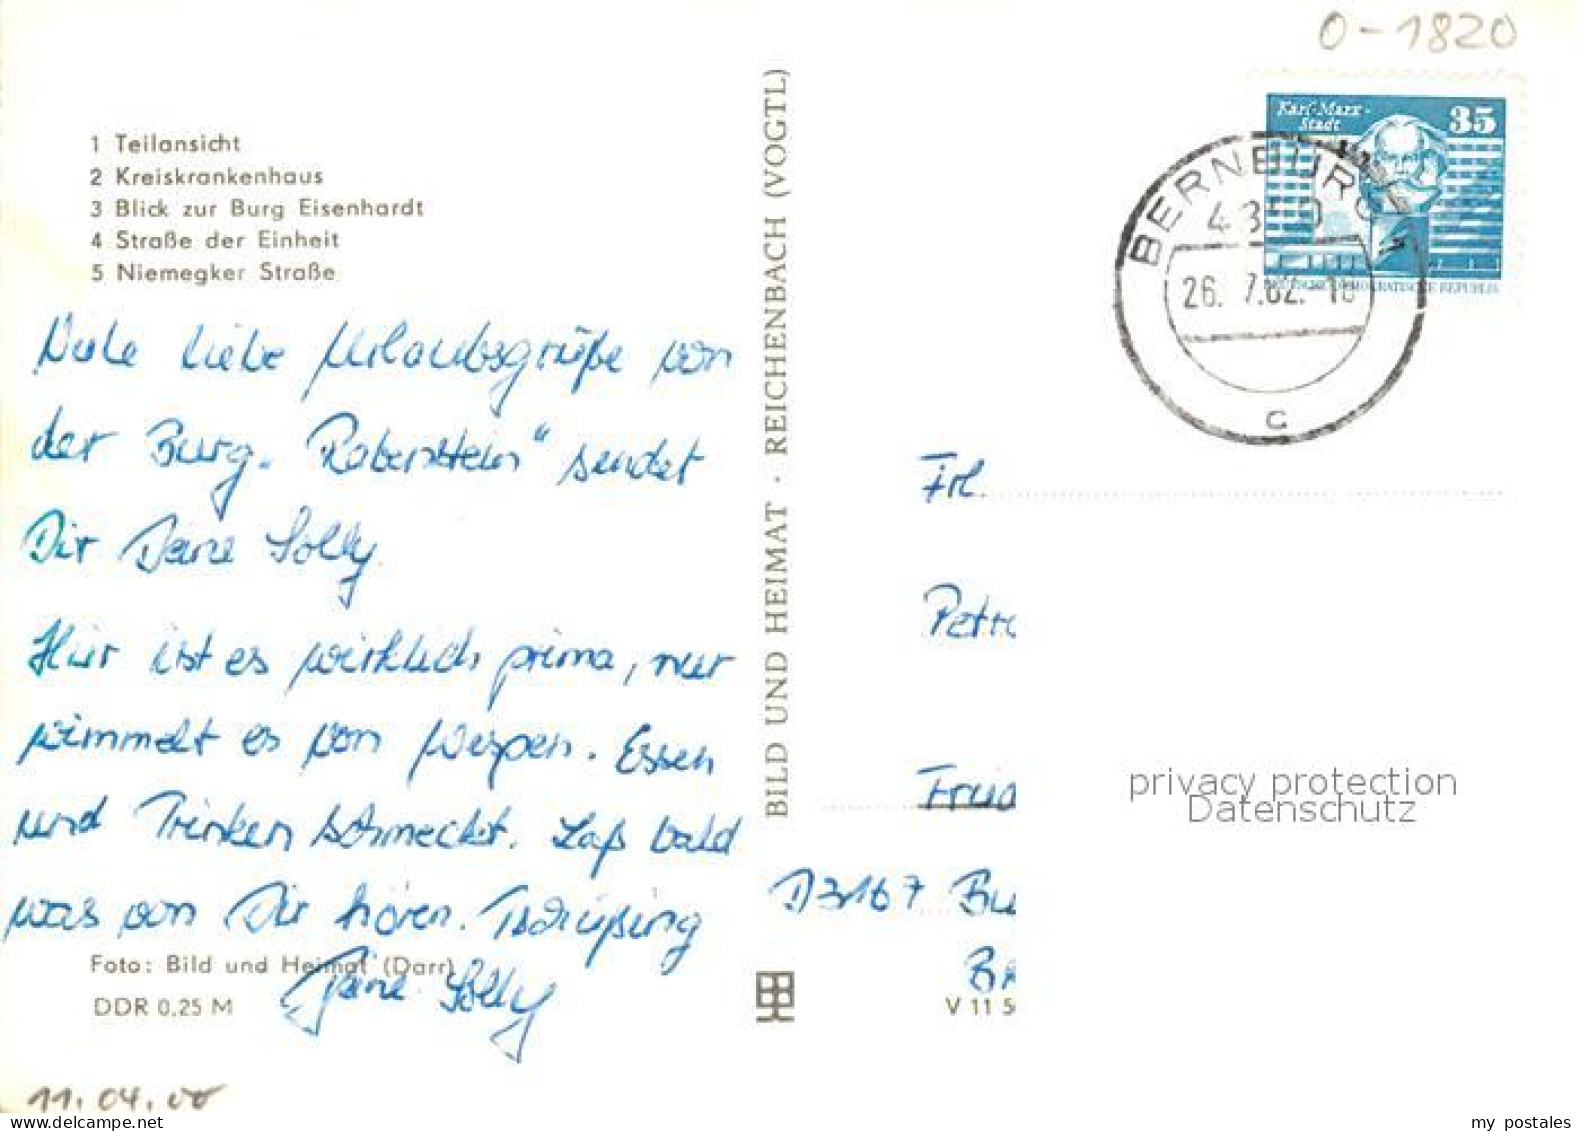 O-1820
Karl-Marx-Stadt
35
DEUTSCHE DEMOKRATISCHE REPUBLIK
BERNBURG
4350
26. 7.82.-18
c
1 Teilansicht
2 Kreiskrankenhaus
3 Blick zur Burg Eisenhardt
4 Straße der Einheit
5 Niemegker Straße
Viele liebe Urlaubsgrüße von
der Burg „Rabenstein“ sendet
Dir Deine Solly.
Hier ist es wirklich prima, nur
wimmelt es von Wespen. Essen
und Trinken schmeckt. Laß bald
was von Dir hören. Tschüßing
Deine Solly
Foto: Bild und Heimat (Darr)
DDR 0,25 M
11.04.00
BILD UND HEIMAT · REICHENBACH (VOGTL)
Frl.
Petr
D3167
V 11 5
privacy protection
Datenschutz
www.delcampe.net
my postales